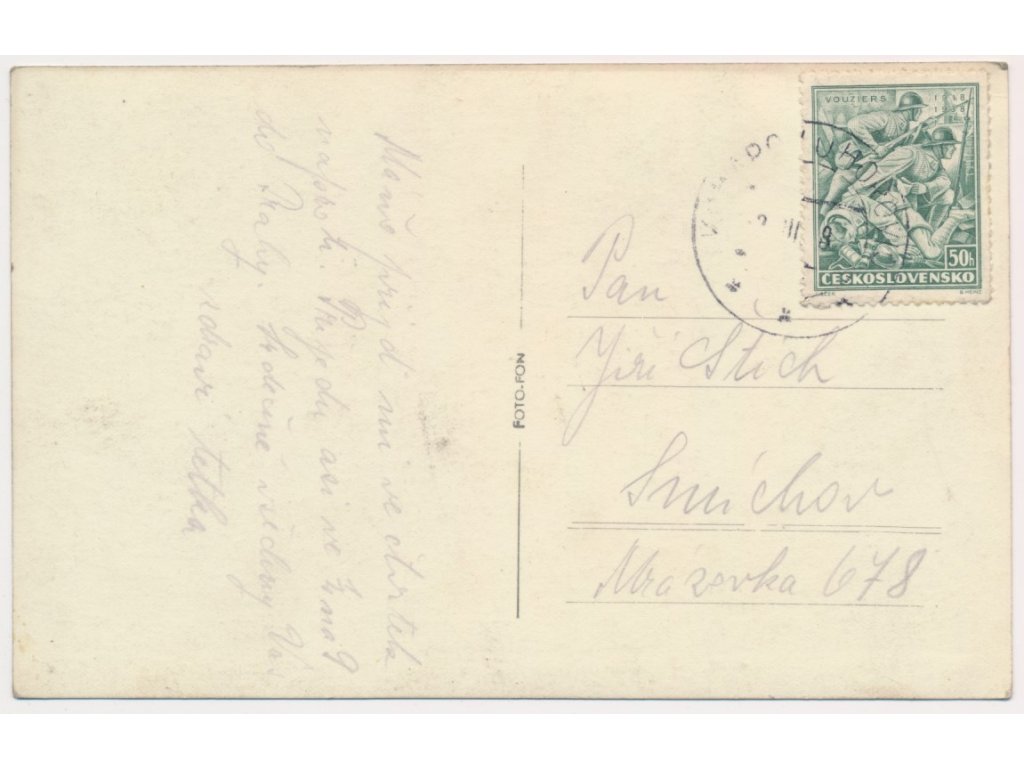 Máňo přijď mi ve čtvrtek
naproti. Přijedu asi ve
do Prahy. Srdečně všechny Vás
zdraví tetka
FOTO-FON
VOUZIERS 1918
1938
50h
ČESKOSLOVENSKO
Pan
Jiří Štich
Smíchov
Mrázovka 678